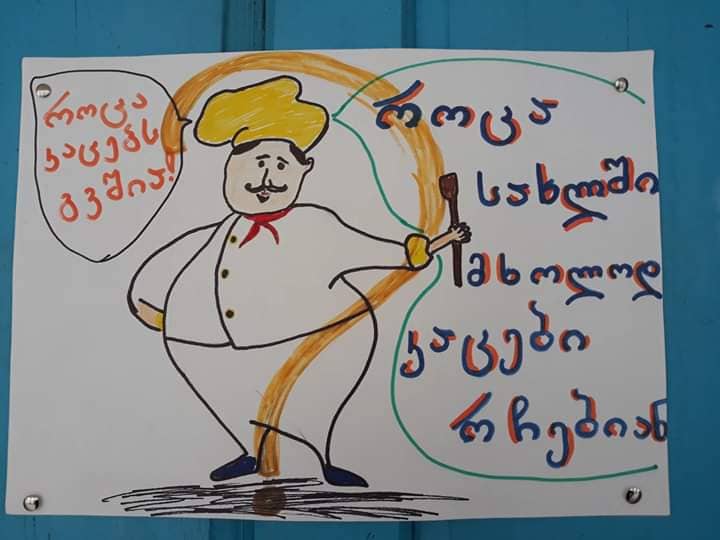 როცა
კაცებს
გვშია!
როცა
სახლში
მხოლოდ
კაცები
რჩებიან